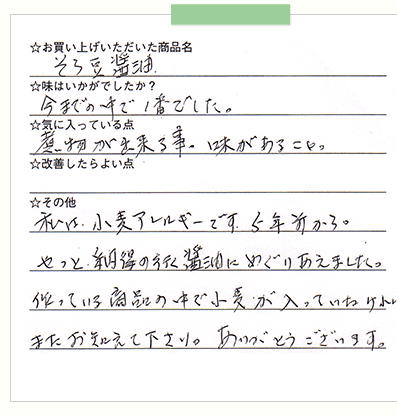 ☆お買い上げいただいた商品名
そら豆醤油
☆味はいかがでしたか？
今までの中で1番でした。
☆気に入っている点
煮物が出来る事。味があること。
☆改善したらよい点
☆その他
私は、小麦アレルギーです。5年前から。
やっと納得の行く醤油にめぐりあえました。
作っている商品の中で小麦が入っていたければ
またお知えて下さい。ありがとうございます。